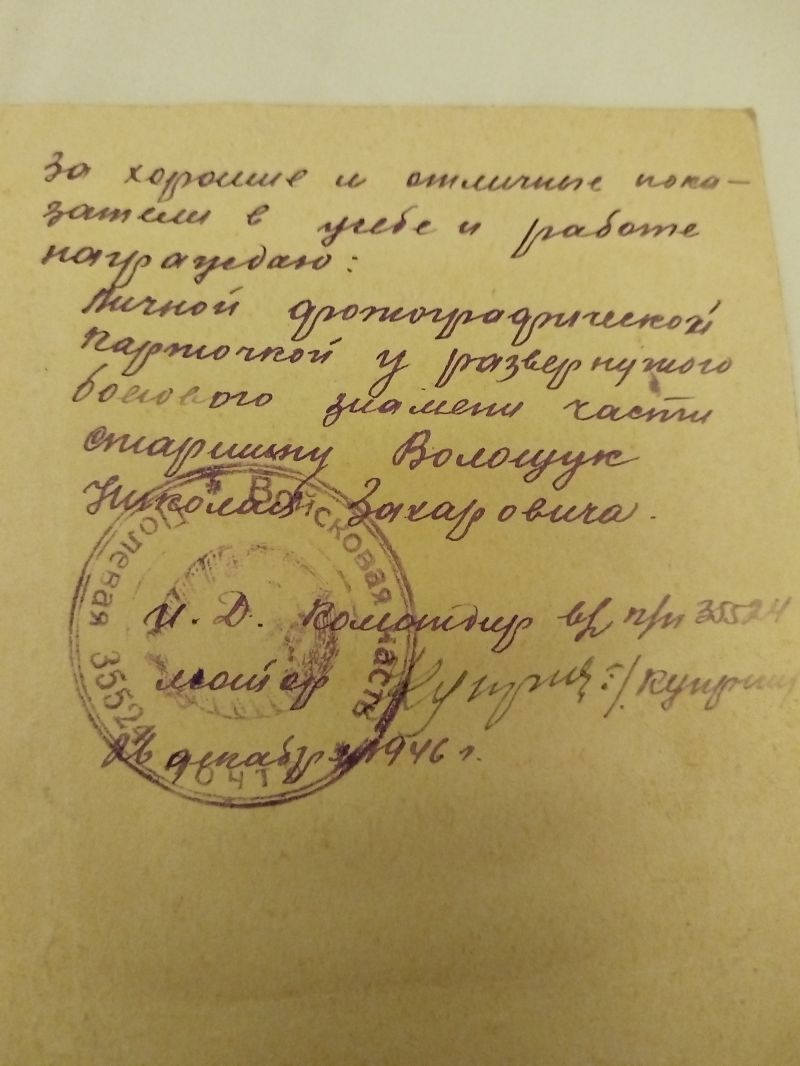 За хорошие и отличные пока-
затели в учебе и работе
награждаю:
Личной фотографической
карточкой у развернутого
боевого знамени части
старшину Волощук
Николая Захаровича.
И. Д. Командир в/ч п/п 35524
майор /Куприн
26 декабря 1946 г.
* Войсковая часть *
Полевая почта 35524